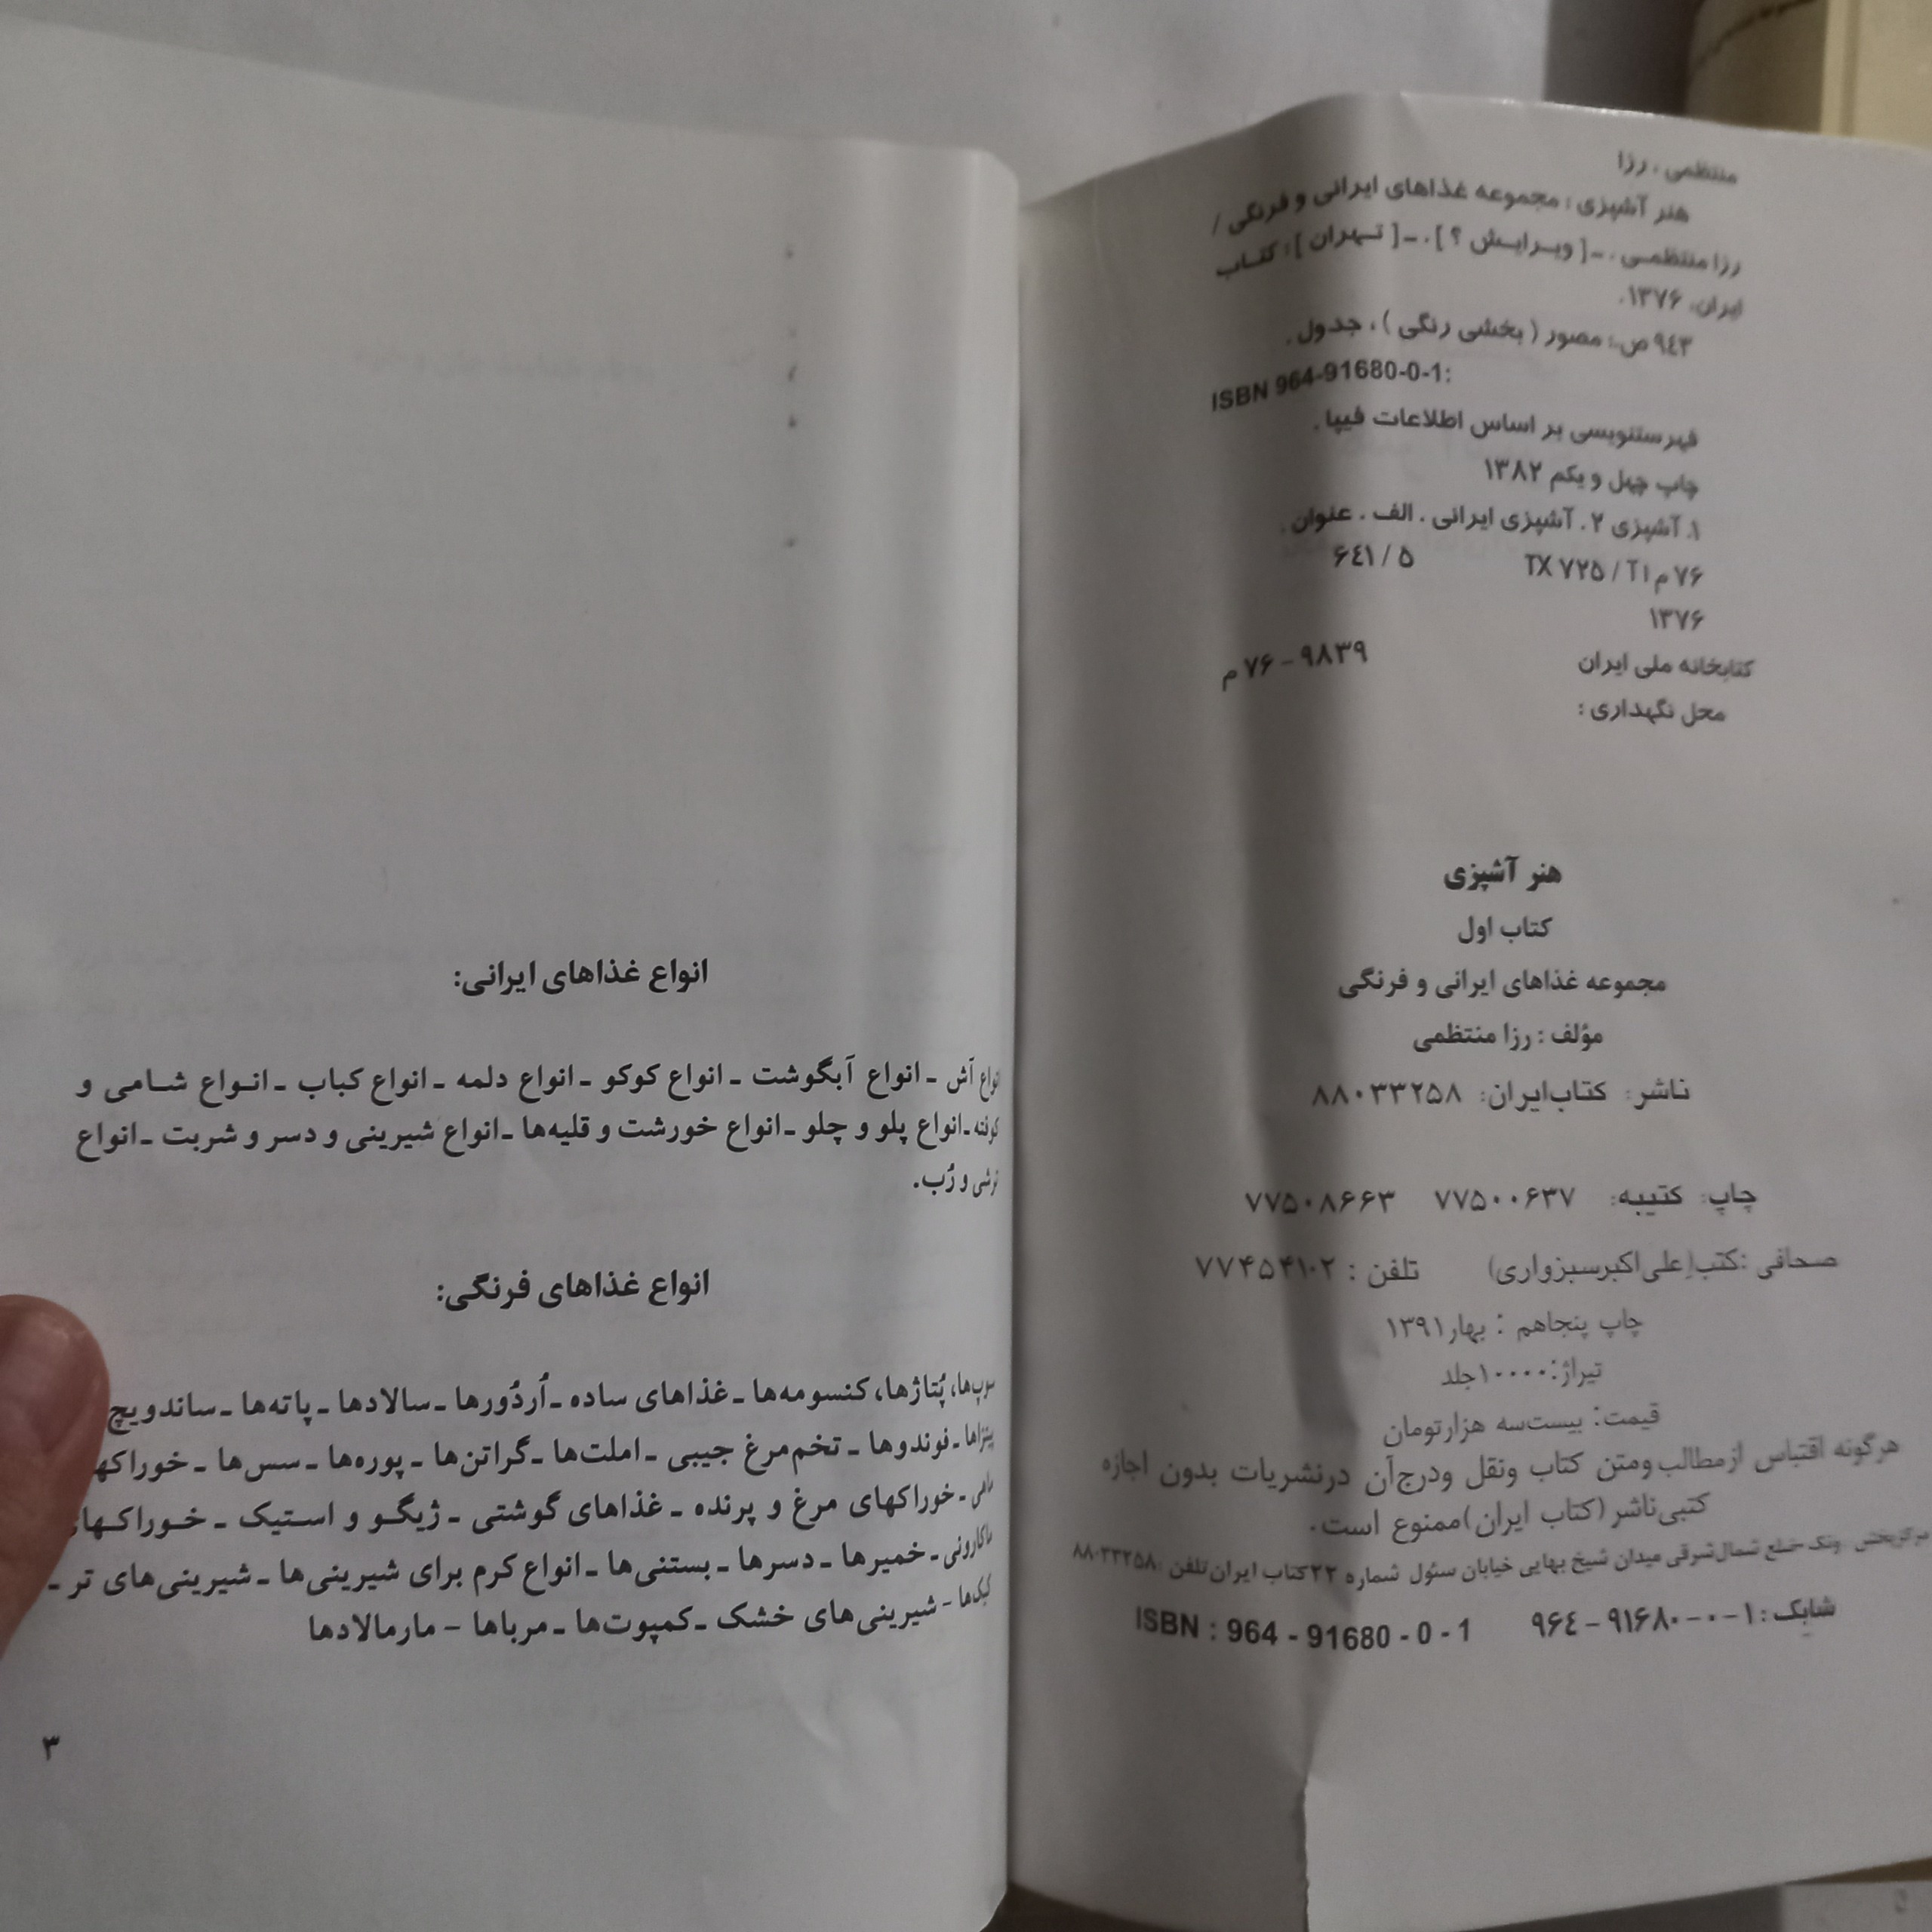 منتظمی، رزا
هنر آشپزی : مجموعه غذاهای ایرانی و فرنگی /
رزا منتظمی. ـ [ ویرایش ؟ ]. ـ [ تهران ] : کتاب
ایران، ۱۳۷۶.
۹٤۳ ص.: مصور ( بخشی رنگی )، جدول.
ISBN 964-91680-0-1:
فهرستنویسی بر اساس اطلاعات فیپا.
چاپ چهل و یکم ۱۳۸۲
۱. آشپزی ۲. آشپزی ایرانی. الف. عنوان.
۷۶ م ۱ آ / ۷۲۵ TX ۶٤۱ / ۵
۱۳۷۶
کتابخانه ملی ایران ۹۸۳۹ – ۷۶ م
محل نگهداری :
هنر آشپزی
کتاب اول
مجموعه غذاهای ایرانی و فرنگی
مؤلف : رزا منتظمی
ناشر: کتاب‌ایران: ۸۸۰۳۳۲۵۸
چاپ: کتیبه: ۷۷۵۰۰۶۳۷ ۷۷۵۰۸۶۶۳
صحافی :کتب(علی‌اکبرسبزواری) تلفن : ۷۷۴۵۴۱۰۲
چاپ پنجاهم : بهار۱۳۹۱
تیراژ:۱۰۰۰۰جلد
قیمت: بیست‌سه هزارتومان
هرگونه اقتباس ازمطالب ومتن کتاب ونقل ودرج‌آن درنشریات بدون اجازه
کتبی‌ناشر (کتاب ایران)ممنوع است.
مرکزپخش : ونک-ضلع شمال‌شرقی میدان شیخ بهایی خیابان سئول شماره ۲۲کتاب ایران‌تلفن :۸۸۰۳۳۲۵۸
شابک : ۱-۰-۹۱۶۸۰-۹۶٤ ISBN : 964 - 91680 - 0 - 1
انواع غذاهای ایرانی:
انواع آش ـ انواع آبگوشت ـ انواع کوکو ـ انواع دلمه ـ انواع کباب ـ انواع شامی و
کوفته ـ انواع پلو و چلو ـ انواع خورشت و قلیه‌ها ـ انواع شیرینی و دسر و شربت ـ انواع
ترشی و رُب.
انواع غذاهای فرنگی:
سوپ‌ها، پُتاژها، کنسومه‌ها ـ غذاهای ساده ـ اُردُورها ـ سالادها ـ پاته‌ها ـ ساندویچ
پیتزاها ـ فوندوها ـ تخم‌مرغ جیبی ـ املت‌ها ـ گراتن‌ها ـ پوره‌ها ـ سس‌ها ـ
ماهی ـ خوراکهای مرغ و پرنده ـ غذاهای گوشتی ـ ژیگو و استیک ـ خوراکهای
ماکارونی ـ خمیرها ـ دسرها ـ بستنی‌ها ـ انواع کرم برای شیرینی‌ها ـ شیرینی‌های تر ـ
کیک‌ها - شیرینی‌های خشک ـ کمپوت‌ها ـ مرباها - مارمالادها
۳